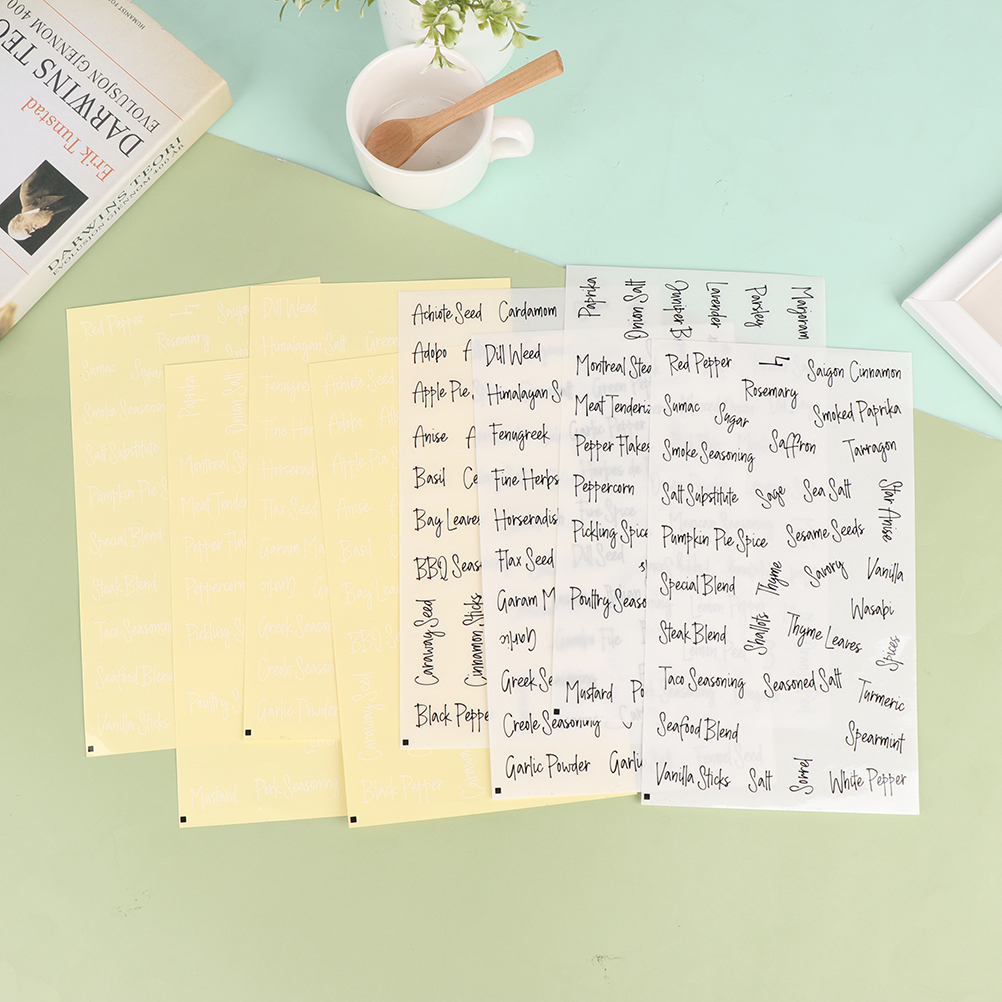 HUMANIST FOR
DARWINS TEO
EVOLUSJON GJENNOM 400
Erik Tunstad
DARWINS TEORI
EVOLUSJON GJENNOM 400 ÅR
Red Pepper
Rosemary
Sumac
Smoke Seasoning
Salt Substitute
Pumpkin Pie S
Special Blend
Steak Blend
Taco Seasoning
Seafood Blend
Vanilla Sticks
Paprika
Onion Salt
Montreal St
Meat Tender
Pepper Flak
Peppercorn
Pickling S
Poultry Se
Mustard
Pork Seasoning
Dill Weed
Himalayan Salt
Green
Fenugreek
Fine Her
Horserad
Flax Seed
Garam Ma
Garlic
Greek Seas
Creole Seas
Garlic Powder
Achiote Seed
Adobo
Apple Pie S
Anise
Basil
Bay Leav
BBQ S
Caraway Seed
Black Pepper
Achiote Seed
Cardamom
Adobo
Apple Pie
Anise
Basil
Ce
Bay Leaves
BBQ Seas
Caraway Seed
Cinnamon Sticks
Black Peppe
Dill Weed
Himalayan S
Fenugreek
Fine Herbs
Horseradis
Flax Seed
Garam M
Garlic
Greek Se
Creole Seasoning
Garlic Powder
Garlic
Paprika
Onion Salt
Juniper B
Lavender
Parsley
Marjoram
Montreal Stea
Meat Tenderiz
Pepper Flakes
Peppercorn
Pickling Spice
Poultry Seaso
Mustard
Po
Red Pepper
Saigon Cinnamon
Rosemary
Sumac
Sugar
Smoked Paprika
Smoke Seasoning
Saffron
Tarragon
Salt Substitute
Sage
Sea Salt
Star Anise
Pumpkin Pie Spice
Sesame Seeds
Special Blend
Thyme
Savory
Vanilla
Wasabi
Steak Blend
Shallots
Thyme Leaves
Spices
Taco Seasoning
Seasoned Salt
Turmeric
Seafood Blend
Spearmint
Vanilla Sticks
Salt
Sorrel
White Pepper